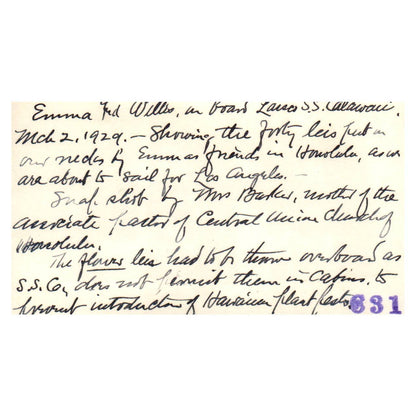 Emma and Willis, on board Lassco S.S. Calawaii,
Mch 2, 1929. - Showing the forty leis put on
our necks by Emma's friends in Honolulu, as we
are about to sail for Los Angeles. -
Snap shot by Mrs Barker, mother of the
associate pastor of Central Union Church of
Honolulu.
The flower leis had to be thrown overboard as
S.S. Co, does not permit them in Cabins, to
prevent introduction of Hawaiian plant pests.
631